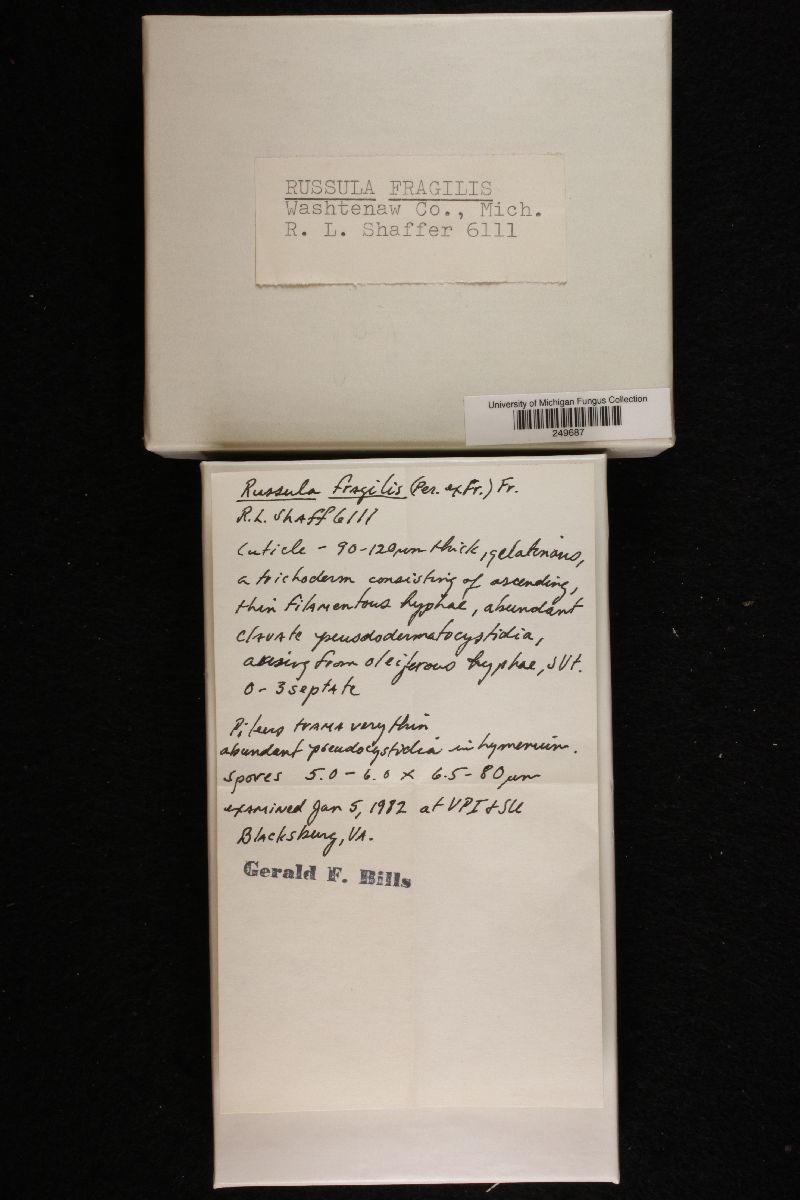 RUSSULA FRAGILIS
Washtenaw Co., Mich.
R. L. Shaffer 6111
University of Michigan Fungus Collection
249687
Russula fragilis (Per. ex Fr.) Fr.
R.L. Shaff 6111
Cuticle - 90-120 µm thick, gelatinous,
a trichoderm consisting of ascending,
thin filamentous hyphae, abundant
clavate pseudodermatocystidia,
arising from oleiferous hyphae, SV+.
0-3 septate
Pileus trama very thin
abundant pseudocystidia in hymenium.
spores 5.0-6.0 x 6.5-80 µm
examined Jan 5, 1982 at VPI & SU
Blacksburg, VA.
Gerald F. Bills